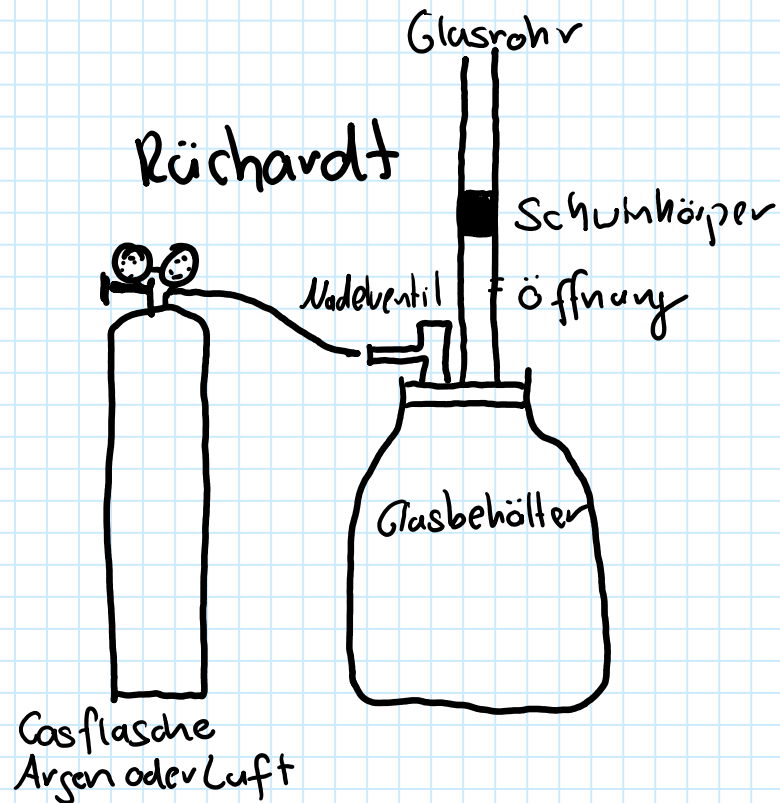 Glasrohr
Rüchardt
Schwinkörper
Nadelventil
Öffnung
Glasbehälter
Gasflasche
Argon oder Luft